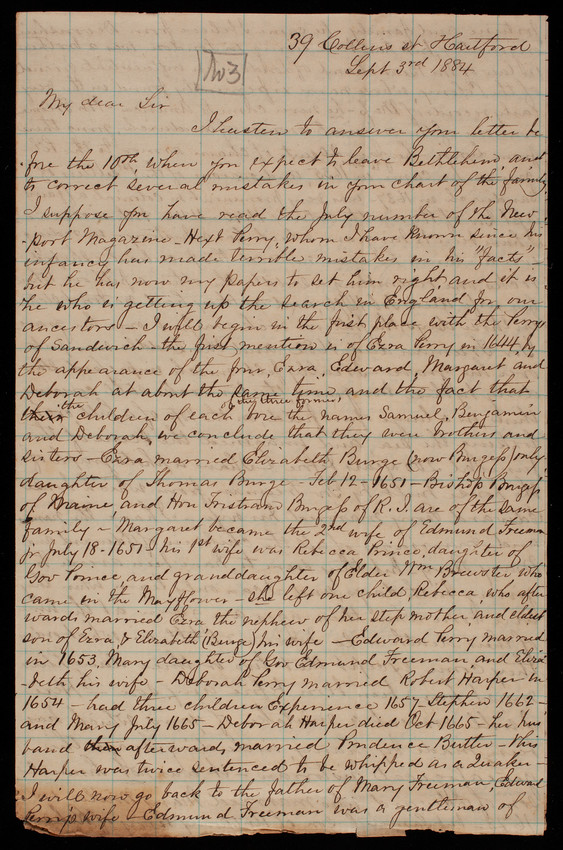 39 Collins st Hartford
No 3
Sept 3rd 1884
My dear Sir
I hasten to answer your letter be
fore the 10th, when you expect to leave Bethlehem and
to correct several mistakes in your chart of the family
I suppose you have read the July number of the New
-port Magazine - Hext Perry, whom I have known since his
infancy has made terrible mistakes in his "facts" -
but he has now my papers to set him right, and it is
he who is getting up the search in England for our
ancestors - I will begin in the first place with the Perrys
of Sandwich - the first mention is of Ezra Perry in 1644, by
the appearance of the four, Ezra, Edward, Margaret and
Deborah at about the same time and the fact that
the children of each of the three former bore the names Samuel, Benjamin
and Deborah, we conclude that they were brothers and
sisters - Ezra married Elizabeth Burge (now Burgess) only
daughter of Thomas Burge - Feb 12 - 1651 - Bishop Burgess
of Maine and Hon Tristram Burgess of R. I. are of the same
family - Margaret became the 2nd wife of Edmund Freeman
Jr July 18 - 1651 - his 1st wife was Rebecca Prince, daughter of
Gov Prince, and granddaughter of Elder Wm Brewster, who
came in the Mayflower - she left one child Rebecca, who after
wards married Ezra the nephew of her step mother, and eldest
son of Ezra & Elizabeth (Burge) his wife - Edward Perry married
in 1653, Mary daughter of Gov Edmund Freeman, and Eliza
-beth his wife - Deborah Perry married Robert Harper in
1654 - had three children Experience 1657 - Stephen 1662 -
and Mary July 1665 - Deborah Harper died Oct 1665 - her hus
band afterwards married Prudence Butler - This
Harper was twice sentenced to be whipped as a Quaker -
I will now go back to the father of Mary Freeman, Edward
Perry's wife - Edmund Freeman was a gentleman of